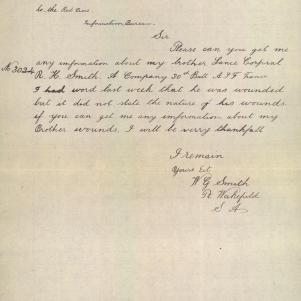 to the Red Cross
Information Bureau
Sir
Please can you get me
any information about my brother Lance Corpral
No 3024
R. H. Smith. A Company 50th Batt A I F France
I had word last week that he was wounded
but it did not state the nature of his wounds
if you can get me any imformation about my
Brother wounds, I will be verry thankfull
I remain
Yours Ect
W G Smith
Pt Wakefield
S A